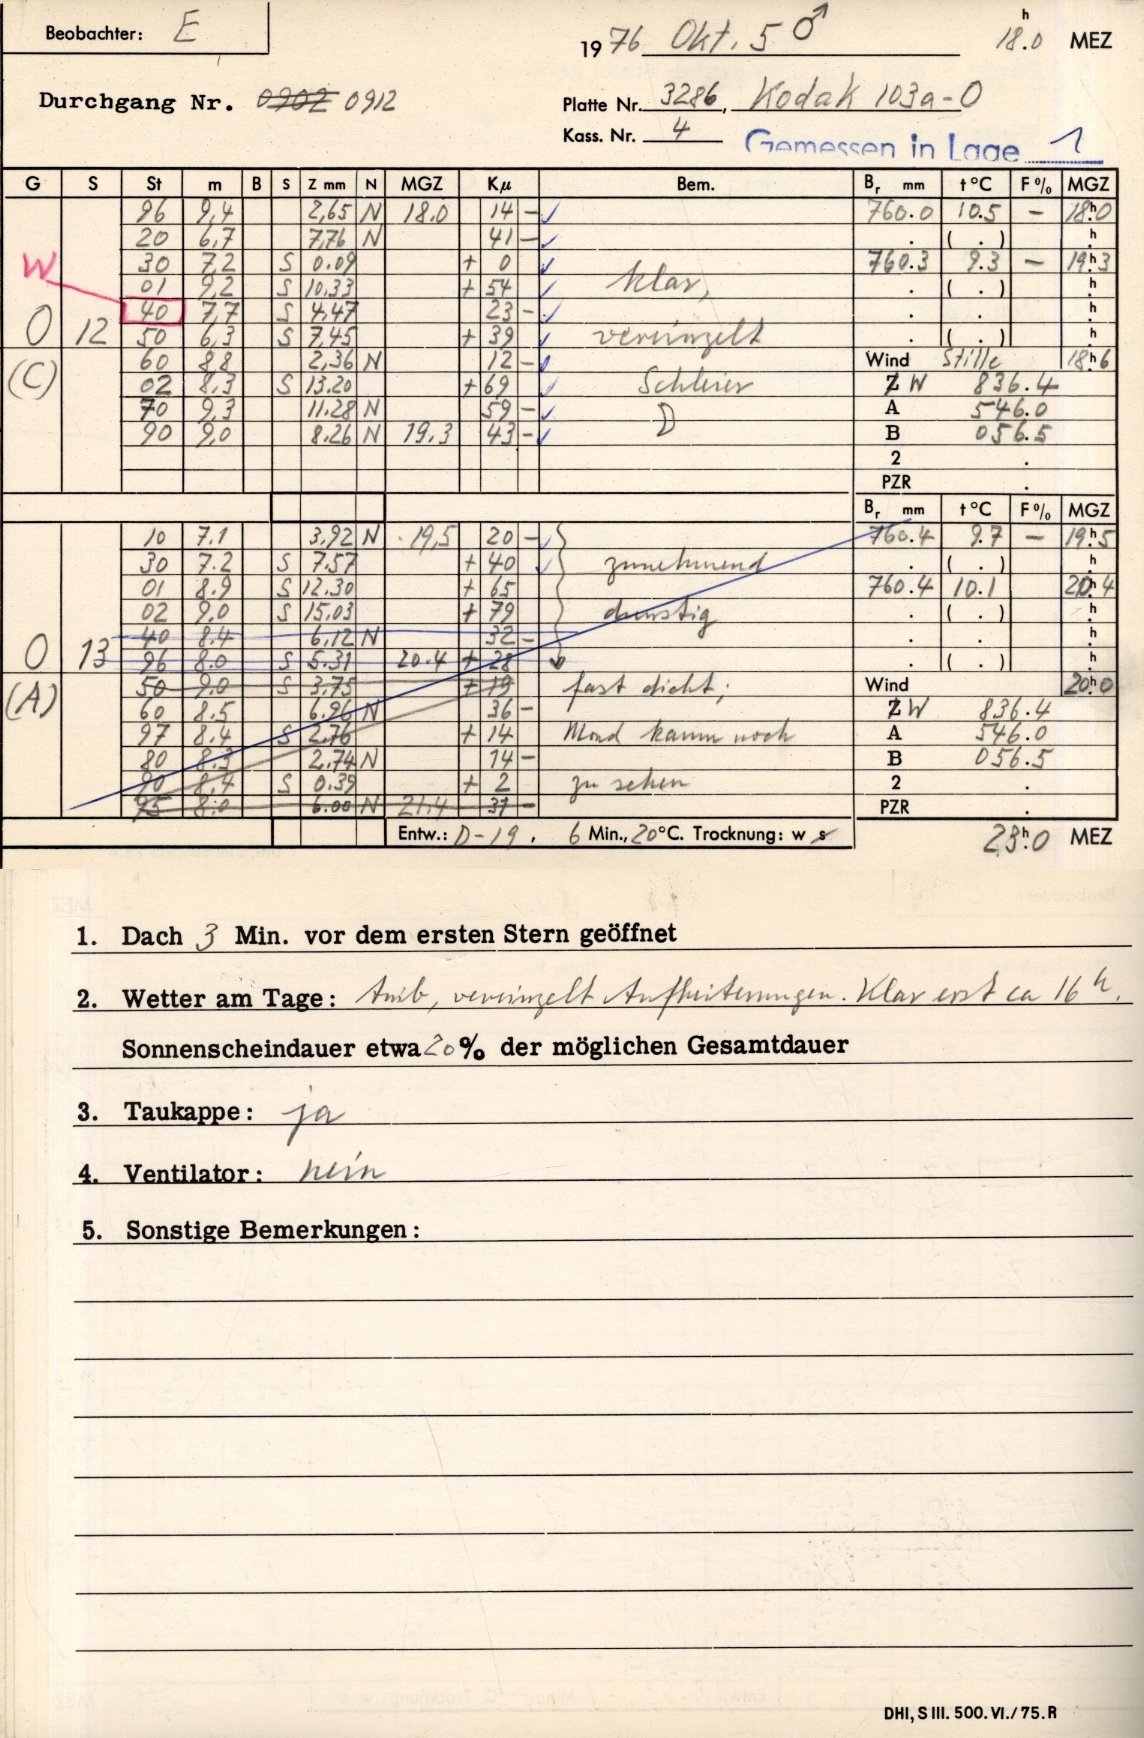 Beobachter: E
1976 Okt. 5 ♂ 18h.0 MEZ
Durchgang Nr. 0902 0912
Platte Nr. 3286, Kodak 103a-O
Kass. Nr. 4 Gemessen in Lage 1
G S St m B S Z mm N MGZ Kμ Bem. Br mm t°C F% MGZ
96 9,4 2,65 N 18.0 14 – ✓ 760.0 10.5 – 18h0
20 6,7 7,76 N 41 – ✓ . ( . ) h
W 30 7.2 S 0.09 + 0 ✓ 760.3 9.3 – 19h3
01 9,2 S 10,33 + 54 ✓ klar, . ( . ) h
40 7,7 S 4,47 23 – ✓ . . h
O 12 50 6,3 S 7,45 + 39 ✓ vereinzelt . ( . ) h
(C) 60 8,8 2,36 N 12 – ✓ Wind Stille 18h6
02 8,3 S 13.20 + 69 ✓ Schleier Z W 836.4
70 9,3 11.28 N 59 – ✓ D A 546.0
90 9,0 8,26 N 19,3 43 – ✓ B 056.5
2 .
PZR .
Br mm t°C F% MGZ
10 7.1 3,92 N 19,5 20 – ✓ 760.4 9.7 – 19h5
30 7.2 S 7.57 + 40 ✓ zunehmend . ( . ) h
01 8.9 S 12,30 + 65 760.4 10.1 20h4
02 9,0 S 15,03 + 79 dunstig . ( . ) h
40 8.4 6,12 N 32 – . . h
O 13 96 8.0 S 5.31 20.4 + 28 . ( . ) h
(A) 50 9.0 S 3,75 + 19 fast dicht; Wind 20h0
60 8.5 6.96 N 36 – Z W 836.4
97 8.4 S 2.76 + 14 Mond kaum noch A 546.0
80 8.3 2.74 N 14 – B 056.5
90 8,4 S 0.39 + 2 zu sehen 2 .
95 8.0 6.00 N 21,4 31 – PZR .
Entw.: D-19, 6 Min., 20°C. Trocknung: w s 23h.0 MEZ
1. Dach 3 Min. vor dem ersten Stern geöffnet
2. Wetter am Tage: trüb, vereinzelt Aufheiterungen. Klar erst ca 16h.
Sonnenscheindauer etwa 20% der möglichen Gesamtdauer
3. Taukappe: ja
4. Ventilator: nein
5. Sonstige Bemerkungen:
DHI, S III. 500. VI./75. R